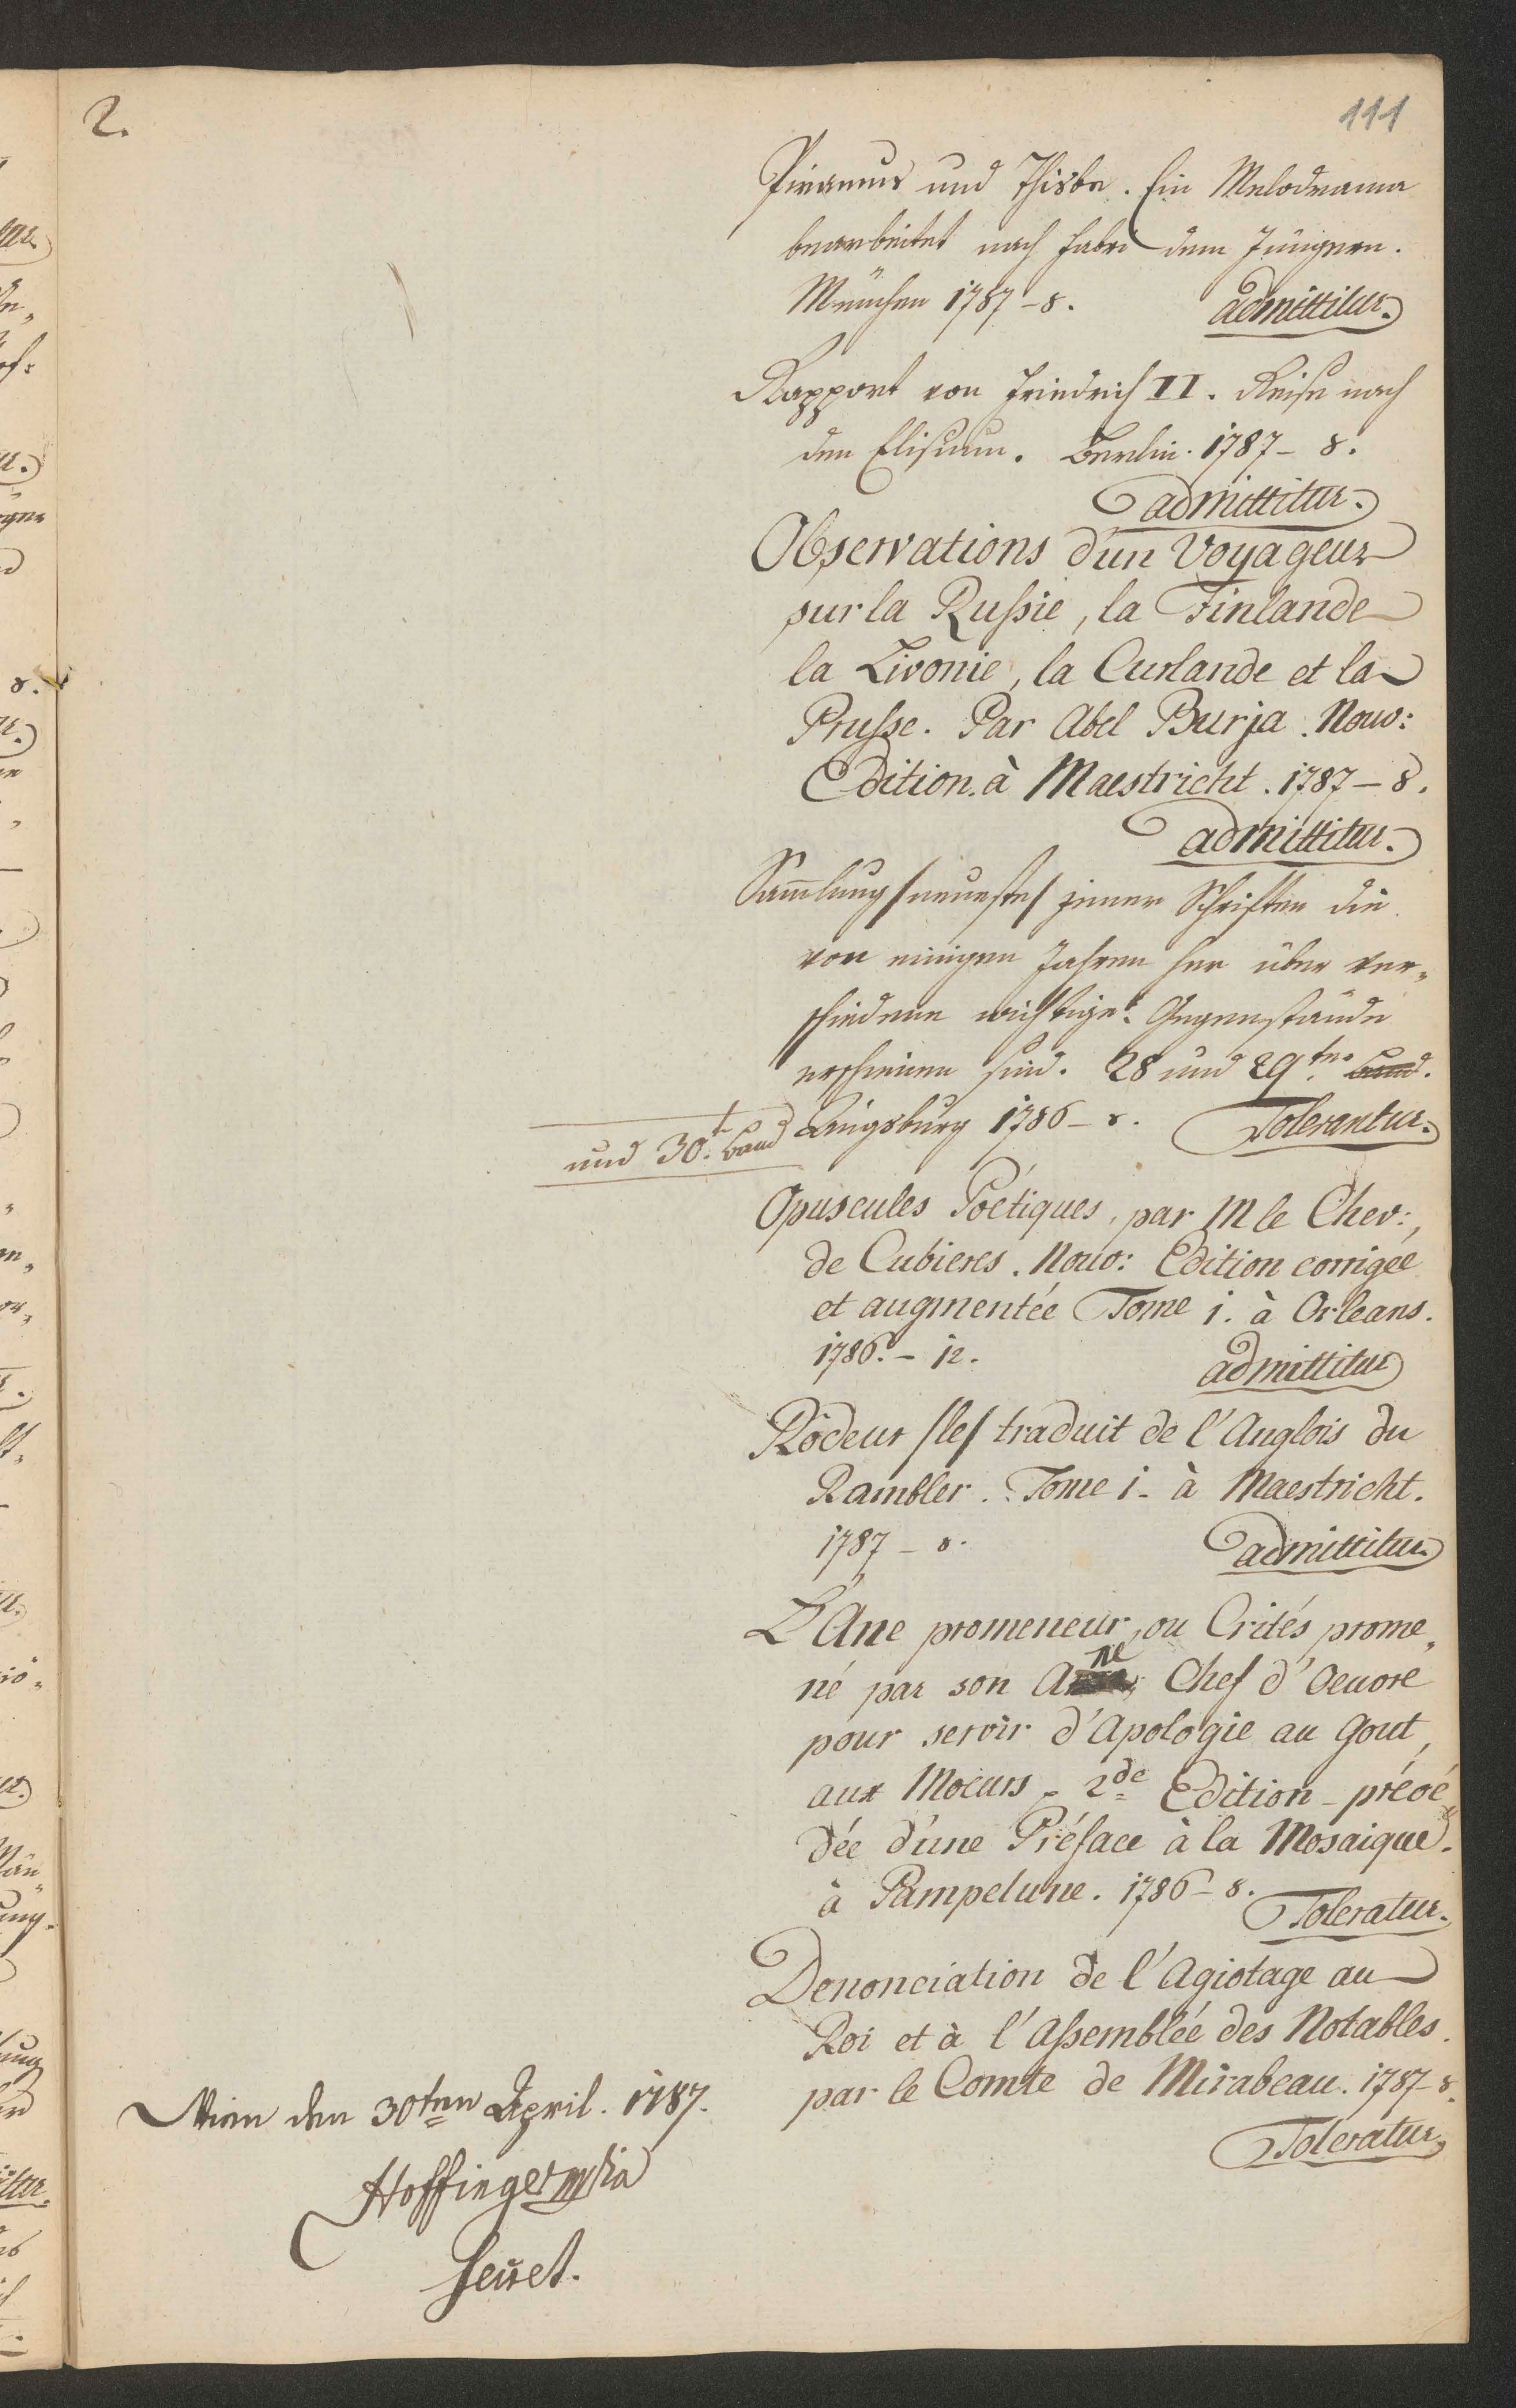 2.
111
Piramus und Thisbe. Ein Melodrama
bearbeitet nach Fabri dem Jüngern.
München 1787-8.
admittitur.
Rapport von Friedrich II. Reise nach
den Elisium. Berlin. 1787-8.
admittitur.
Observations d'un Voyageur
sur la Rußie, la Finlande
la Livonie, la Curlande et la
Prusse. Par Abel Burja. Nouv:
Edition. à Maestricht. 1787-8.
admittitur.
Sam̅lung /neueste/ jener Schriften die
von einigen Jahren her über ver„
schiedene wichtige Gegenstände
erschienen sind. 28 und 29ten Band.
und 30.t Band
Augsburg 1786-8. Tolerantur.
Opuscules Poëtiques, par M le Chev:,
de Cubieres. Nouv: Edition corrigée
et augmentée Tome 1. à Orleans.
1786.-12.
admittitur
Rôdeur /le/ traduit de l'Anglois du
Rambler. Tome 1. à Maestricht.
1787-8.
admittitur.
L'Ane promeneur, ou Crités prome„
né par son Ane Chef d'Oeuvre
pour servir d'Apologie au Gout,
aux Moeurs. 2de Edition - précé„
dée d'une Préface à la Mosaique.
à Pampelune. 1786-8.
Toleratur.
Denonciation de l'Agiotage au
Roi et à l'Aßemblée des Notables.
par le Comte de Mirabeau. 1787-8.
Toleratur.
Wien den 30ten April. 1787.
Hoffinger mpia